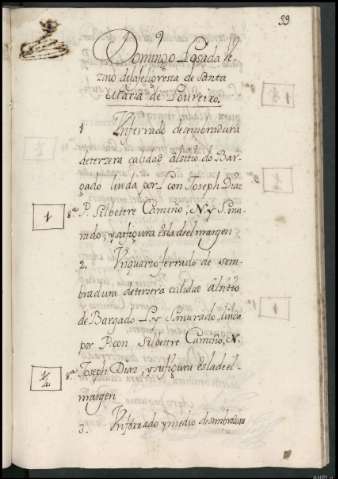 39
Domingo Losada Ve
zino dela feligresia de Santa
Maria de Loureiro.
1 Un ferrado desembradura
detersera calidad alsitio do Bar
gado linda por L. con Joseph Diaz
P. Silbestre Camiño, N. y S. mu
rado, y su figura es la del margen
1
2. Un quarto ferrado de sem
bradura detersera calidad alsitio
de Bargado L. y S. murado, linda
por P. con Silbestre Camiño, N.
Joseph Diaz, y su figura es la del
margen
1/4
3. Un ferrado y medio desembradura